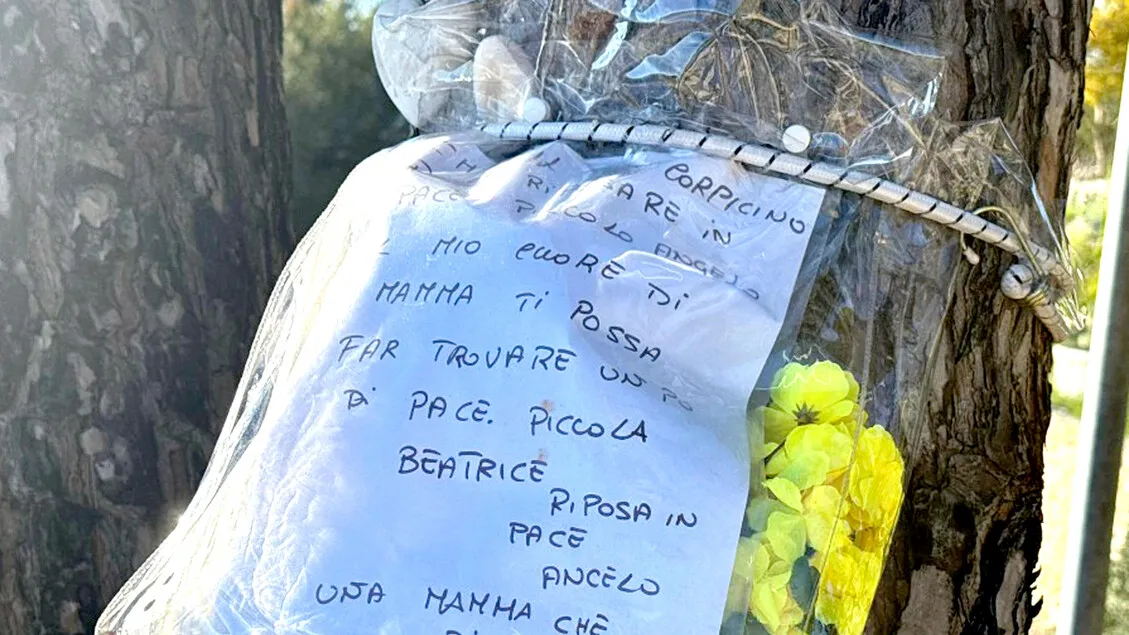 CORPICINO
RI ARE IN
PACE PICCOLO ANGELO
MIO CUORE DI
MAMMA TI POSSA
FAR TROVARE UN PO
DI PACE. PICCOLA
BEATRICE
RIPOSA IN
PACE
ANGELO
UNA MAMMA CHE